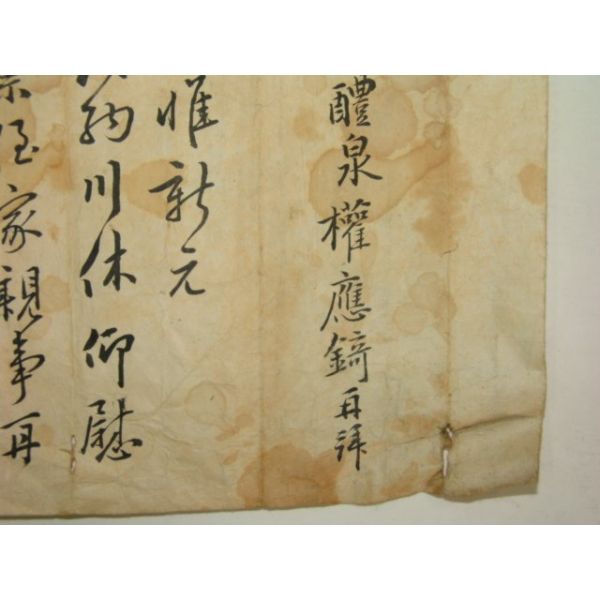 醴泉權應錡再拜
惟新元
納川休仰慰
家親事再